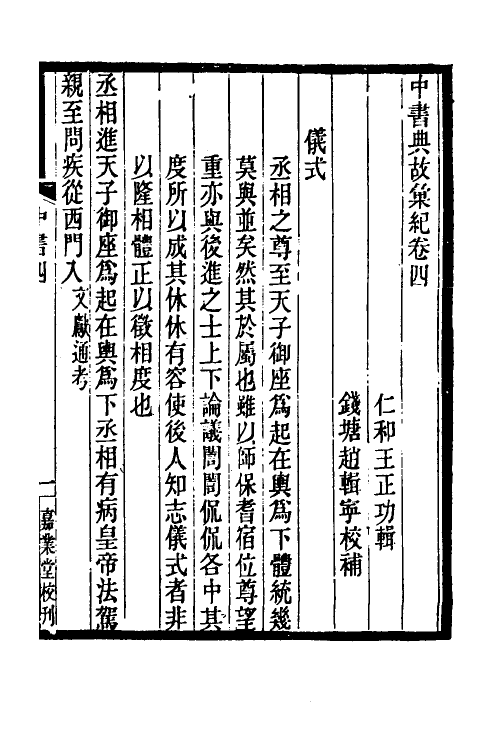 中書典故彙紀卷四
仁和王正功輯
錢塘趙輯寧校補
儀式
丞相之尊至天子御座爲起在輿爲下體統幾
莫與並矣然其於屬也雖以師保耆宿位尊望
重亦與後進之士上下論議誾誾侃侃各中其
度所以成其休休有容使後人知志儀式者非
以隆相體正以徵相度也
丞相進天子御座爲起在輿爲下丞相有病皇帝法駕
親至問疾從西門入文獻通考
中書四
一
嘉業堂校刊